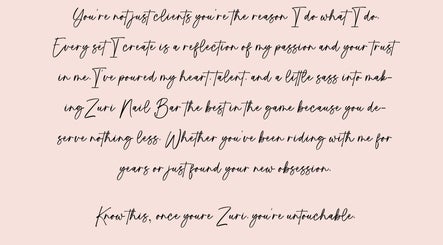 You're not just clients you're the reason I do what I do.
Every set I create is a reflection of my passion and your trust
in me. I've poured my heart, talent, and a little sass into mak-
ing Zuri Nail Bar the best in the game because you de-
serve nothing less. Whether you've been riding with me for
years or just found your new obsession.
Know this, once youre Zuri, you're untouchable.